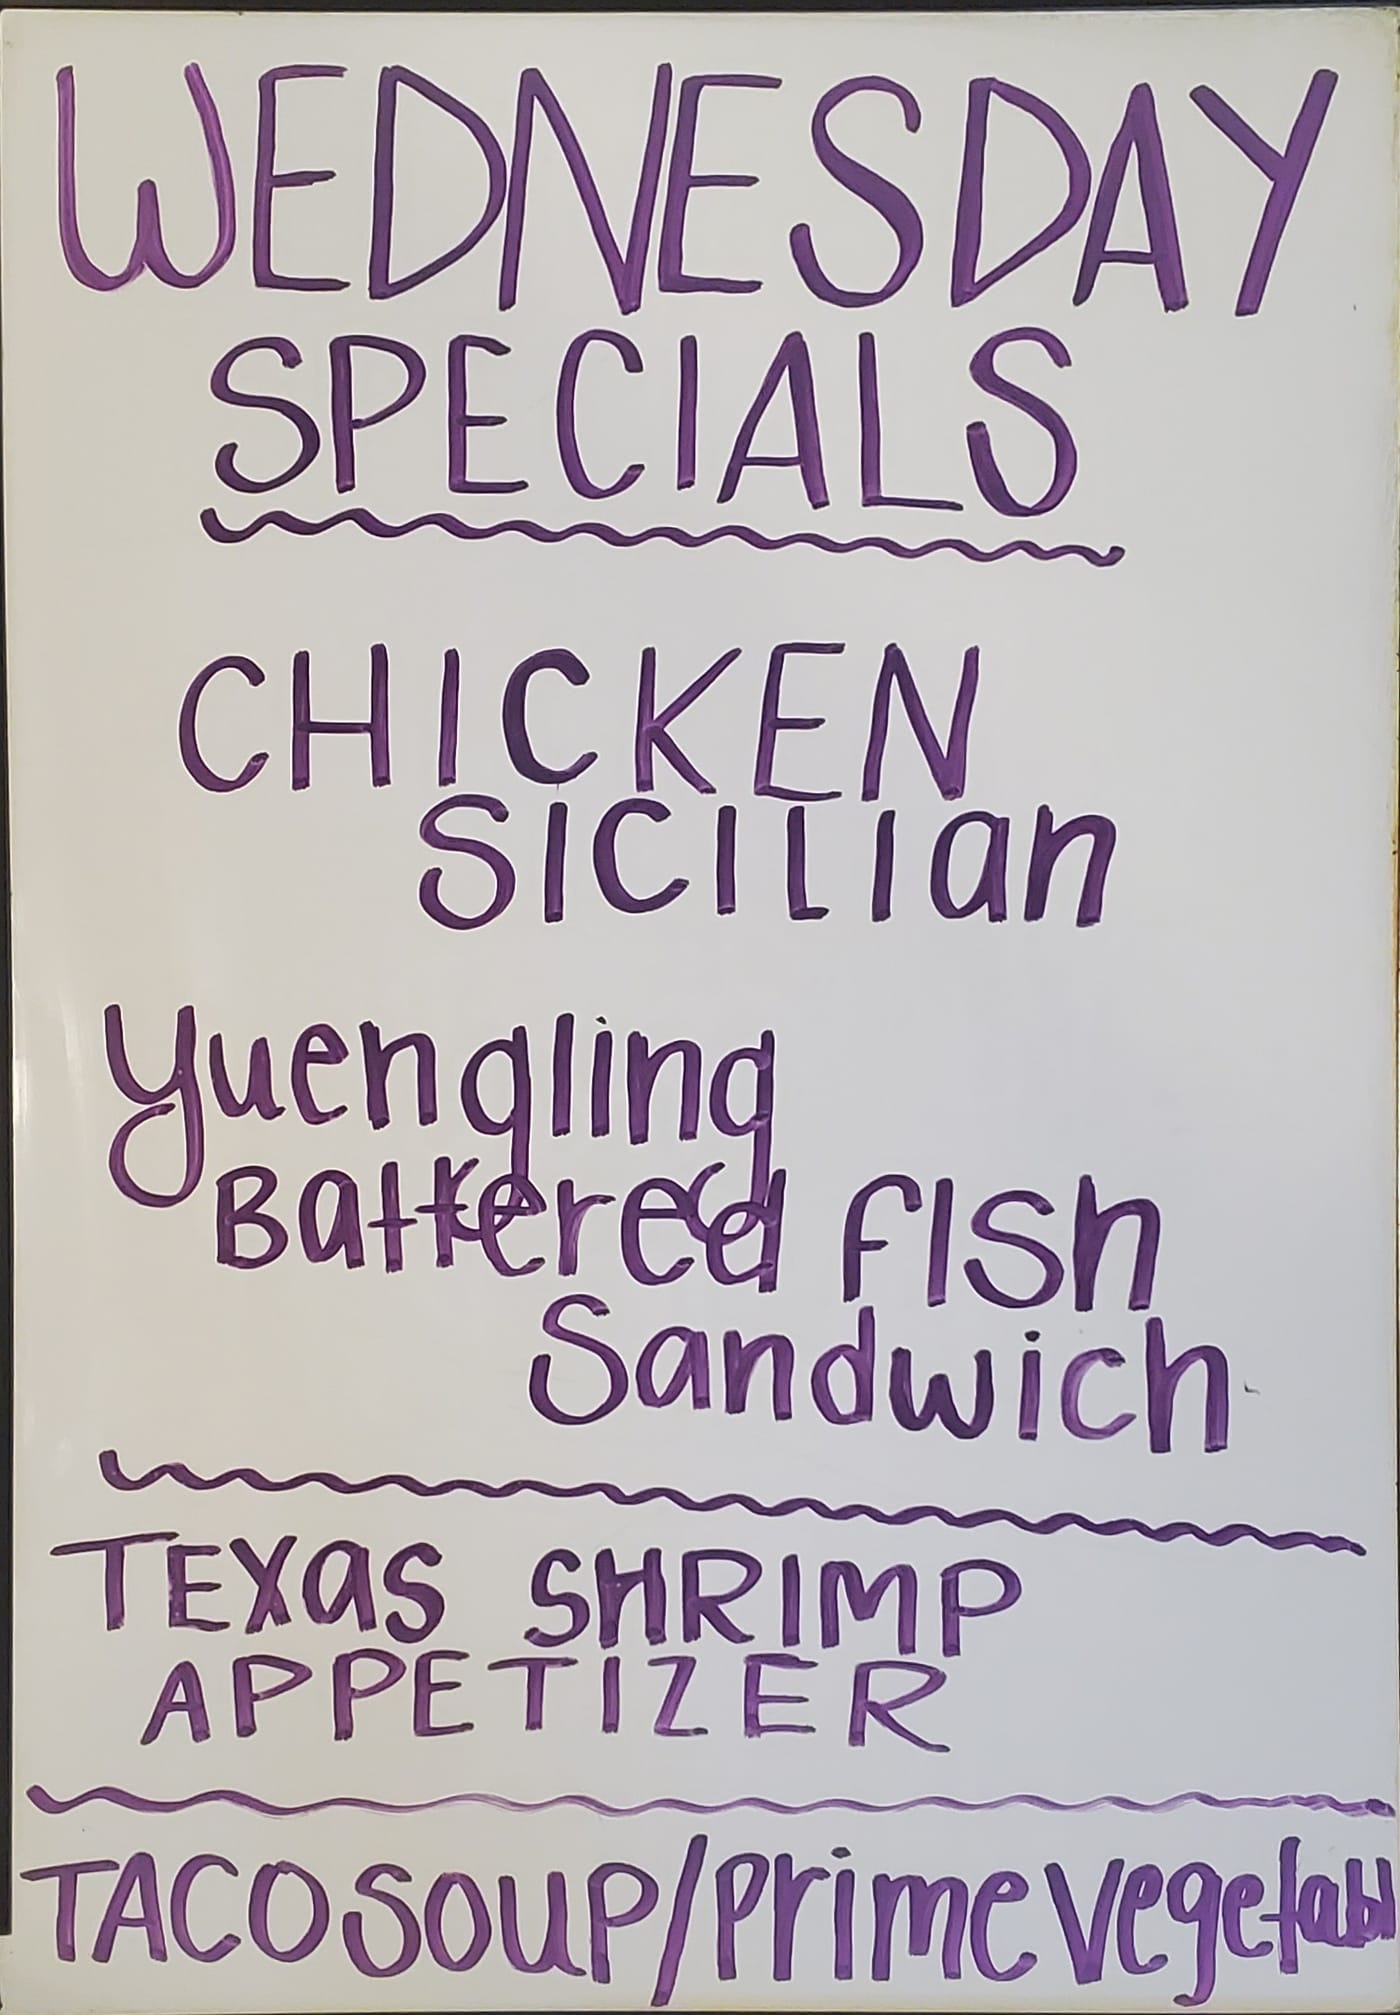 WEDNESDAY
SPECIALS
CHICKEN
SICILIan
Yuengling
Battered FISh
Sandwich
TEXas SHRIMP
APPETIZER
TACO SOUP/Prime Vegetabl